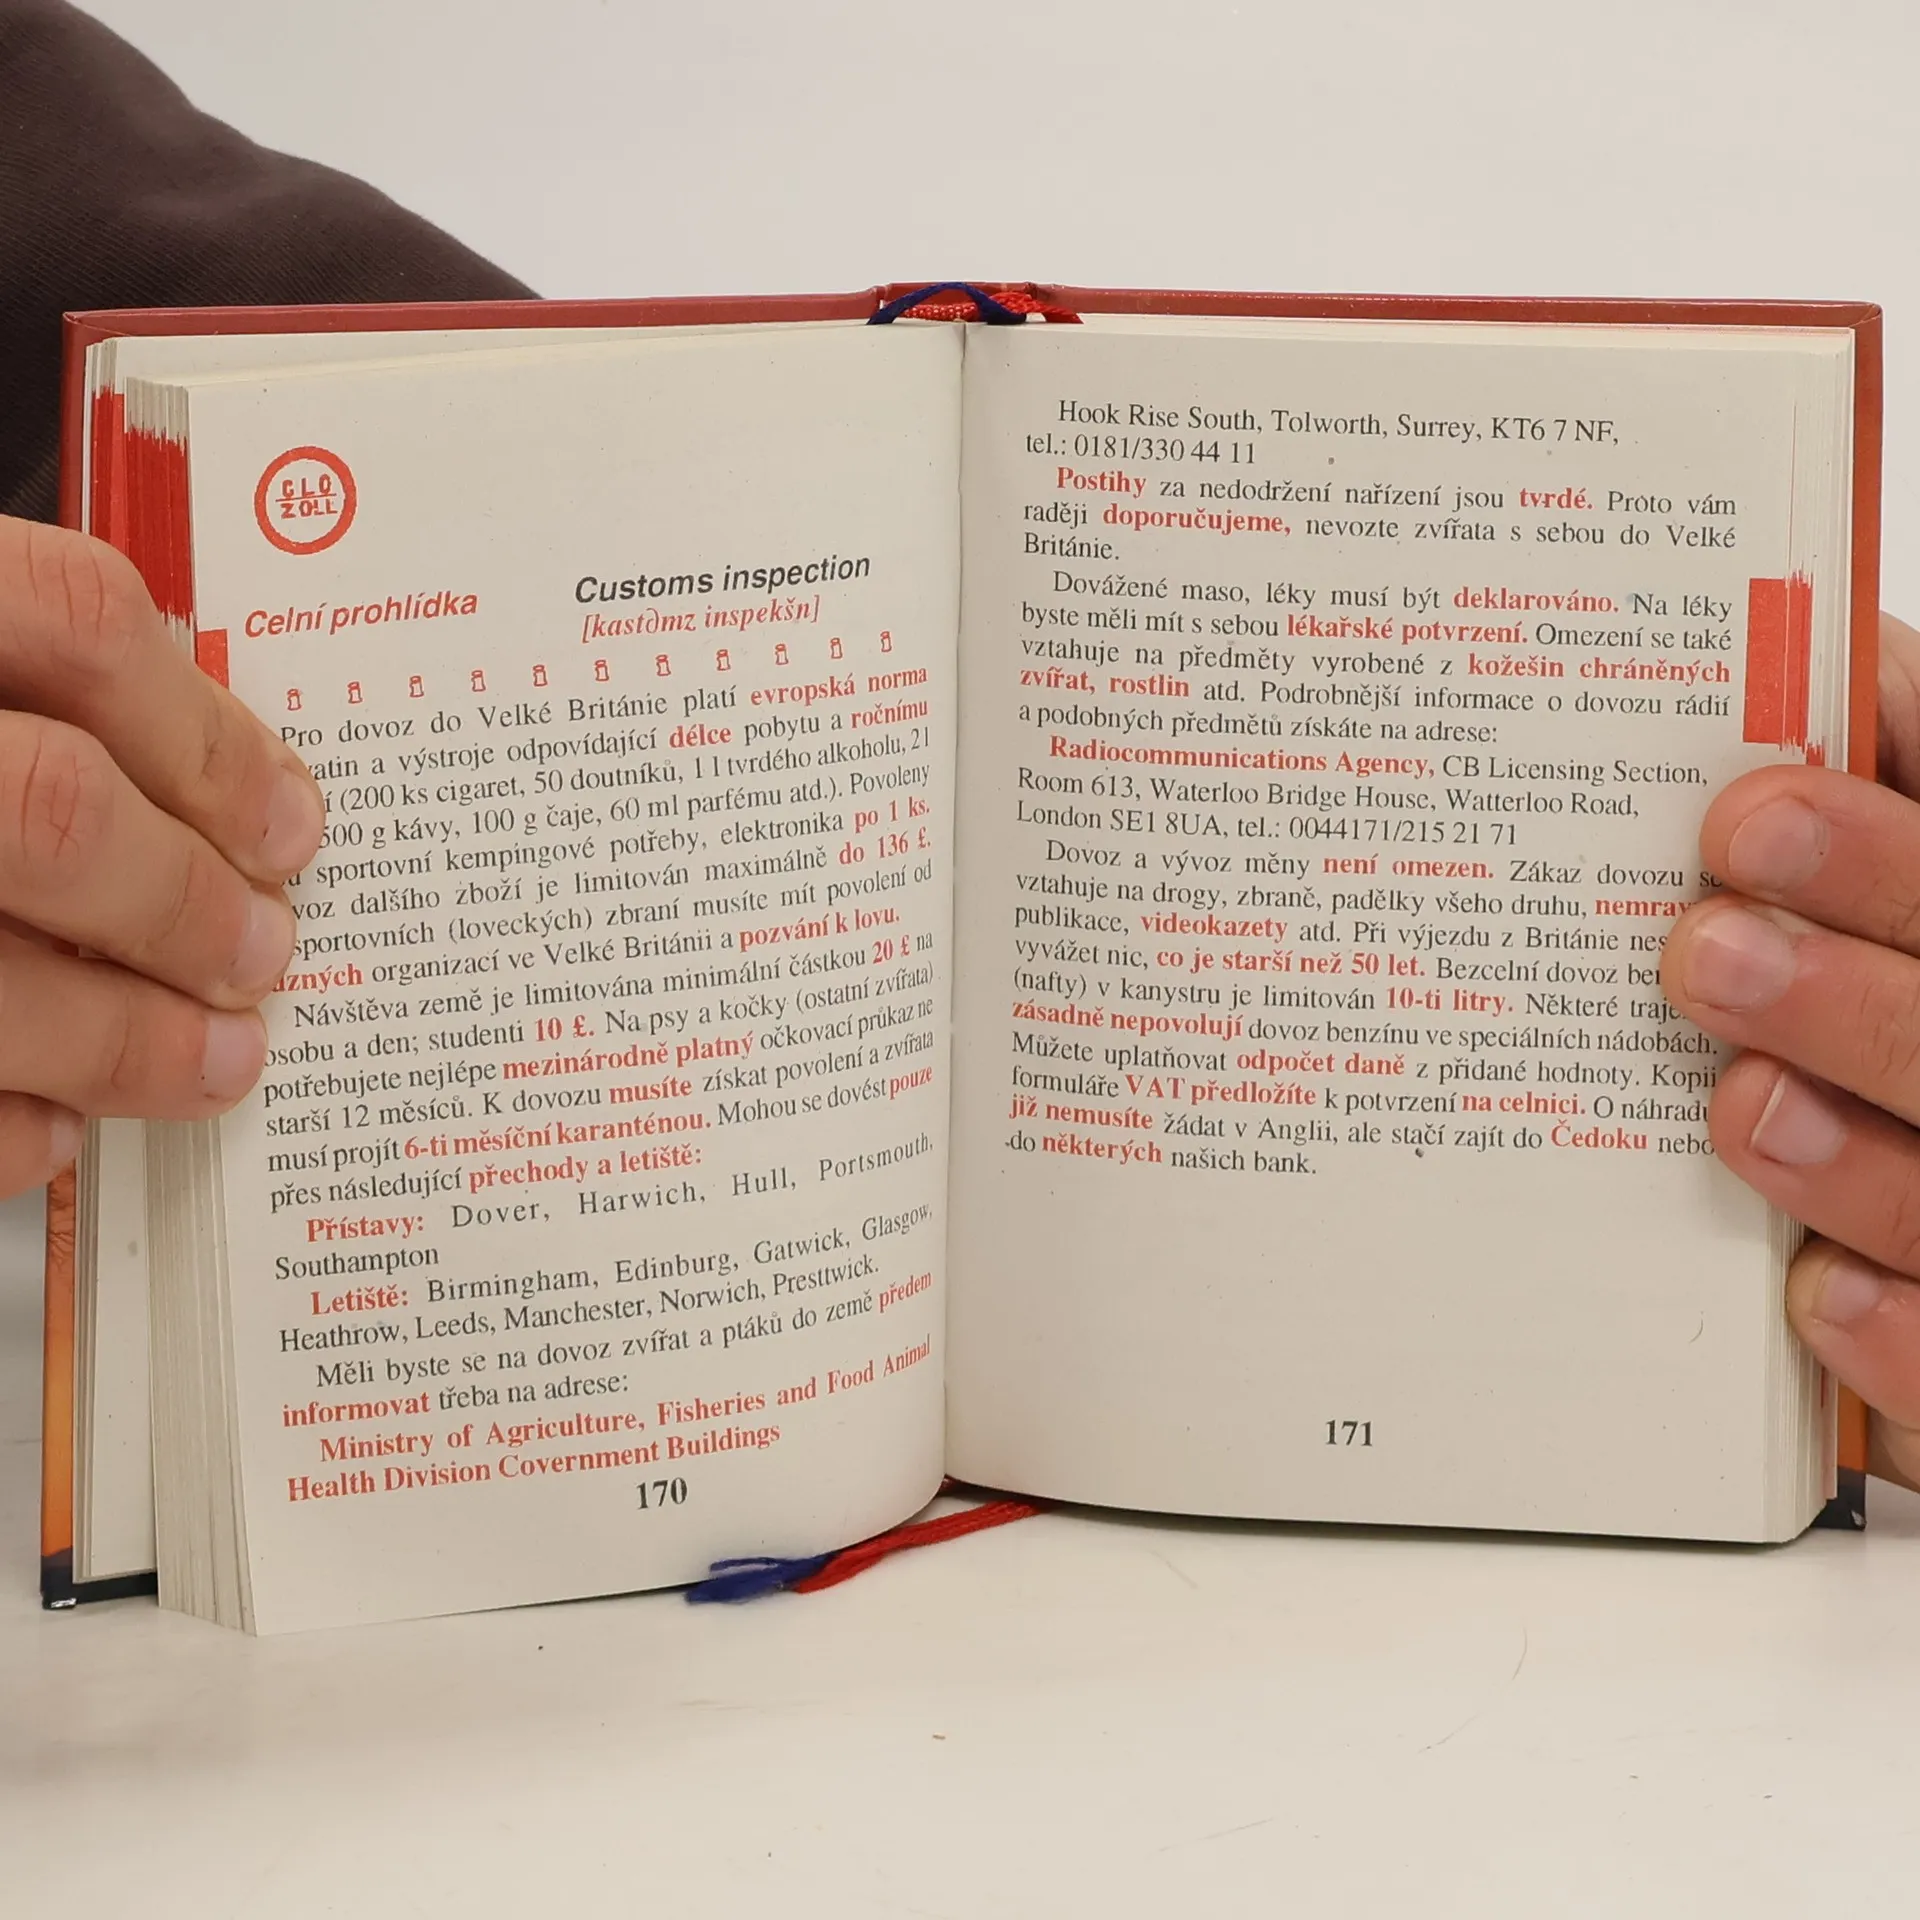 CLO
ZOLL
Celní prohlídka
Customs inspection
[kast∂mz inspekšn]
Pro dovoz do Velké Británie platí evropská norma
a výstroje odpovídající délce pobytu a ročnímu
(200 ks cigaret, 50 doutníků, 1 l tvrdého alkoholu, 2 l
500 g kávy, 100 g čaje, 60 ml parfému atd.). Povoleny
sportovní kempingové potřeby, elektronika po 1 ks.
dalšího zboží je limitován maximálně do 136 £.
sportovních (loveckých) zbraní musíte mít povolení od
organizací ve Velké Británii a pozvání k lovu.
Návštěva země je limitována minimální částkou 20 £ na
osobu a den; studenti 10 £. Na psy a kočky (ostatní zvířata)
potřebujete nejlépe mezinárodně platný očkovací průkaz ne
starší 12 měsíců. K dovozu musíte získat povolení a zvířata
musí projít 6-ti měsíční karanténou. Mohou se dovést pouze
přes následující přechody a letiště:
Přístavy: Dover, Harwich, Hull, Portsmouth,
Southampton
Letiště: Birmingham, Edinburg, Gatwick, Glasgow,
Heathrow, Leeds, Manchester, Norwich, Presttwick.
Měli byste se na dovoz zvířat a ptáků do země předem
informovat třeba na adrese:
Ministry of Agriculture, Fisheries and Food Animal
Health Division Covernment Buildings
170
Hook Rise South, Tolworth, Surrey, KT6 7 NF,
tel.: 0181/330 44 11
Postihy za nedodržení nařízení jsou tvrdé. Proto vám
raději doporučujeme, nevozte zvířata s sebou do Velké
Británie.
Dovážené maso, léky musí být deklarováno. Na léky
byste měli mít s sebou lékařské potvrzení. Omezení se také
vztahuje na předměty vyrobené z kožešin chráněných
zvířat, rostlin atd. Podrobnější informace o dovozu rádií
a podobných předmětů získáte na adrese:
Radiocommunications Agency, CB Licensing Section,
Room 613, Waterloo Bridge House, Watterloo Road,
London SE1 8UA, tel.: 0044171/215 21 71
Dovoz a vývoz měny není omezen. Zákaz dovozu se
vztahuje na drogy, zbraně, padělky všeho druhu,
publikace, videokazety atd. Při výjezdu z Británie
vyvážet nic, co je starší než 50 let. Bezcelní dovoz
(nafty) v kanystru je limitován 10-ti litry. Některé
zásadně nepovolují dovoz benzínu ve speciálních nádobách.
Můžete uplatňovat odpočet daně z přidané hodnoty. Kopii
formuláře VAT předložíte k potvrzení na celnici. O náhradu
již nemusíte žádat v Anglii, ale stačí zajít do Čedoku nebo
do některých našich bank.
171